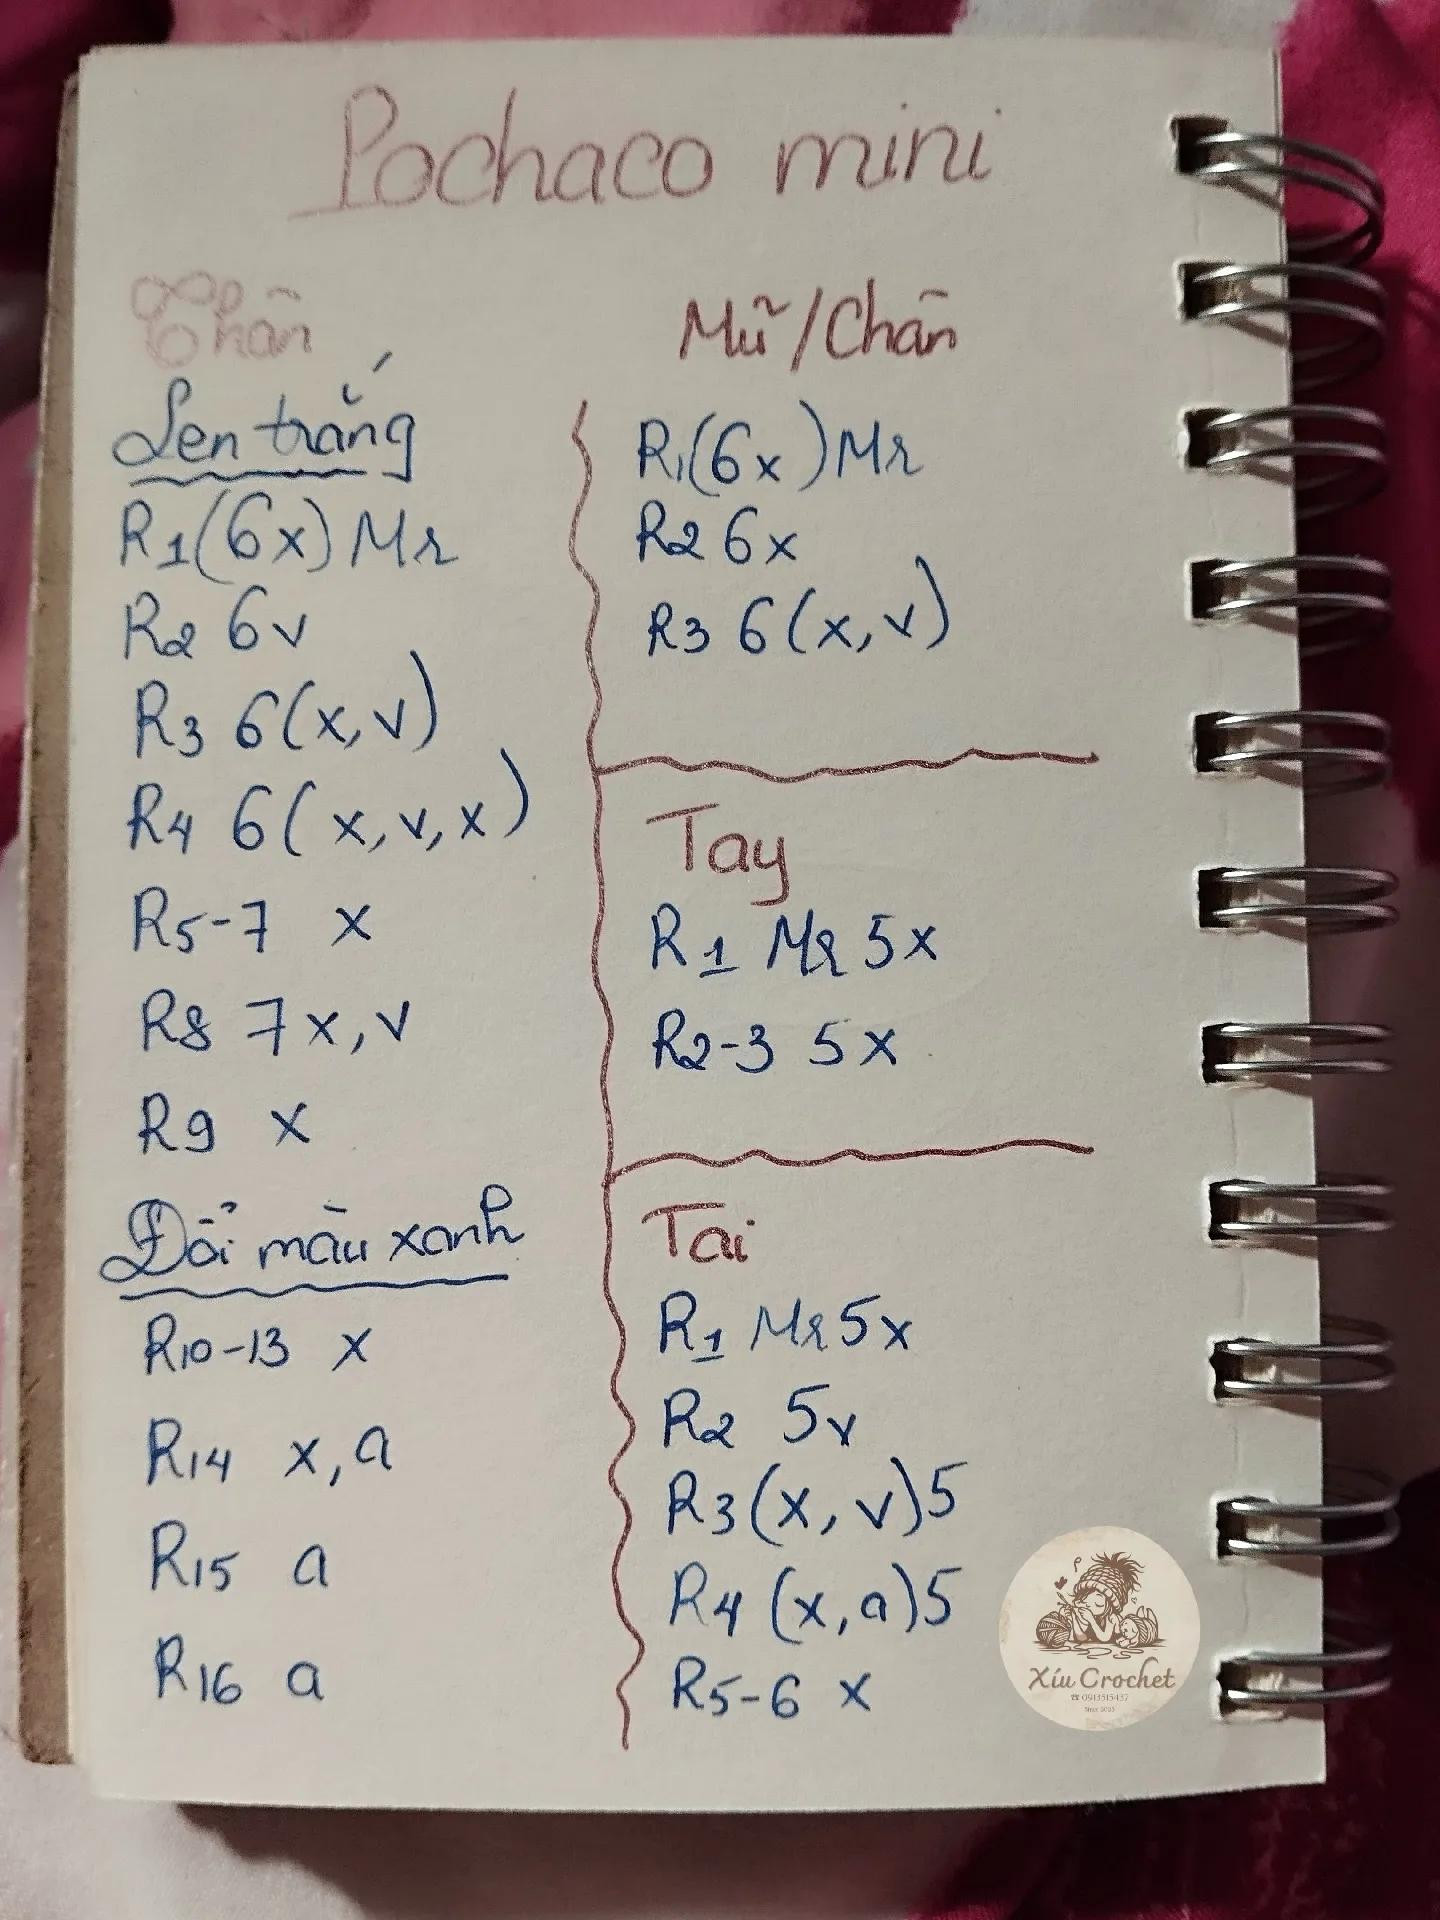 Pochaco mini
Thân
Len trắng
R1 (6x) Mr
R2 6v
R3 6(x,v)
R4 6(x,v,x)
R5-7 x
R8 7x,v
R9 x
Đổi màu xanh
R10-13 x
R14 x,a
R15 a
R16 a
Mũ/Chân
R1(6x)Mr
R2 6x
R3 6(x,v)
Tay
R1 Mr 5x
R2-3 5x
Tai
R1 Mr 5x
R2 5v
R3(x,v)5
R4 (x,a)5
R5-6 x
Xíu Crochet
☎ 0913515437